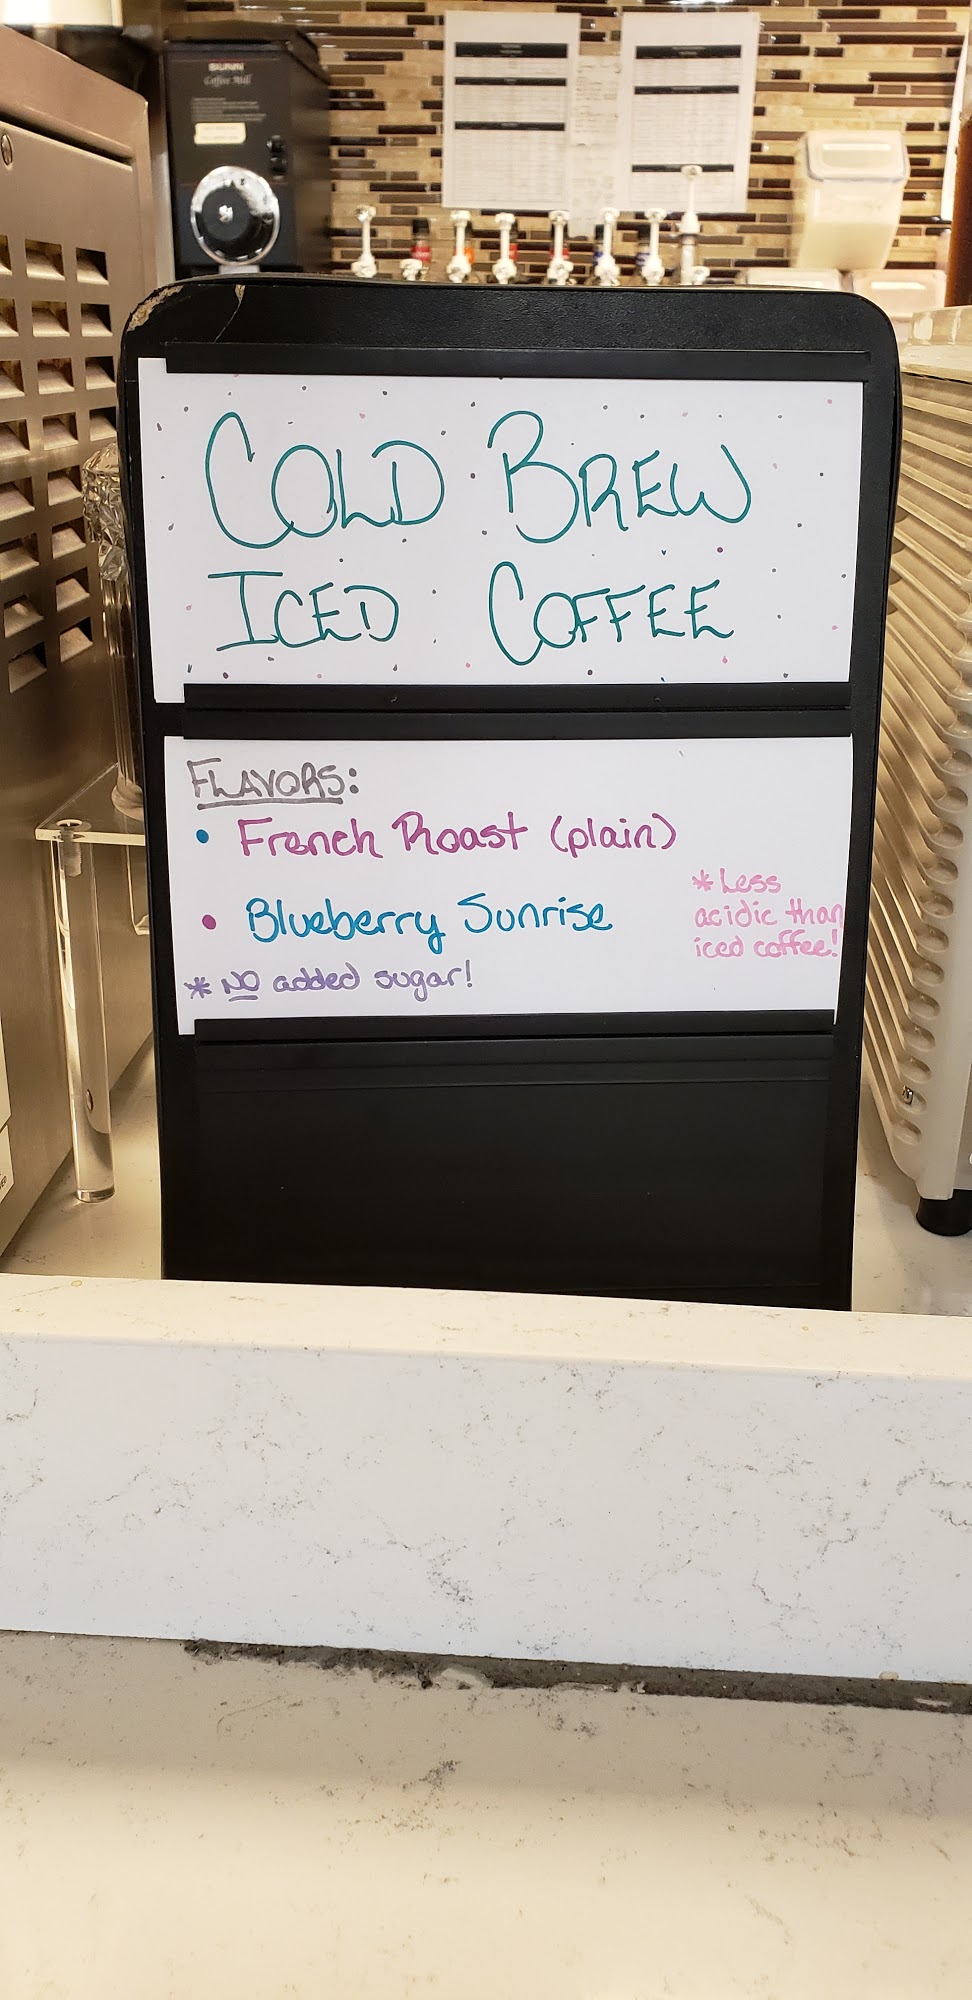 BUNN
Coffee Mill
COLD BREW
ICED COFFEE
FLAVORS:
• French Roast (plain)
• Blueberry Sunrise
* Less
acidic than
iced coffee!
* NO added sugar!